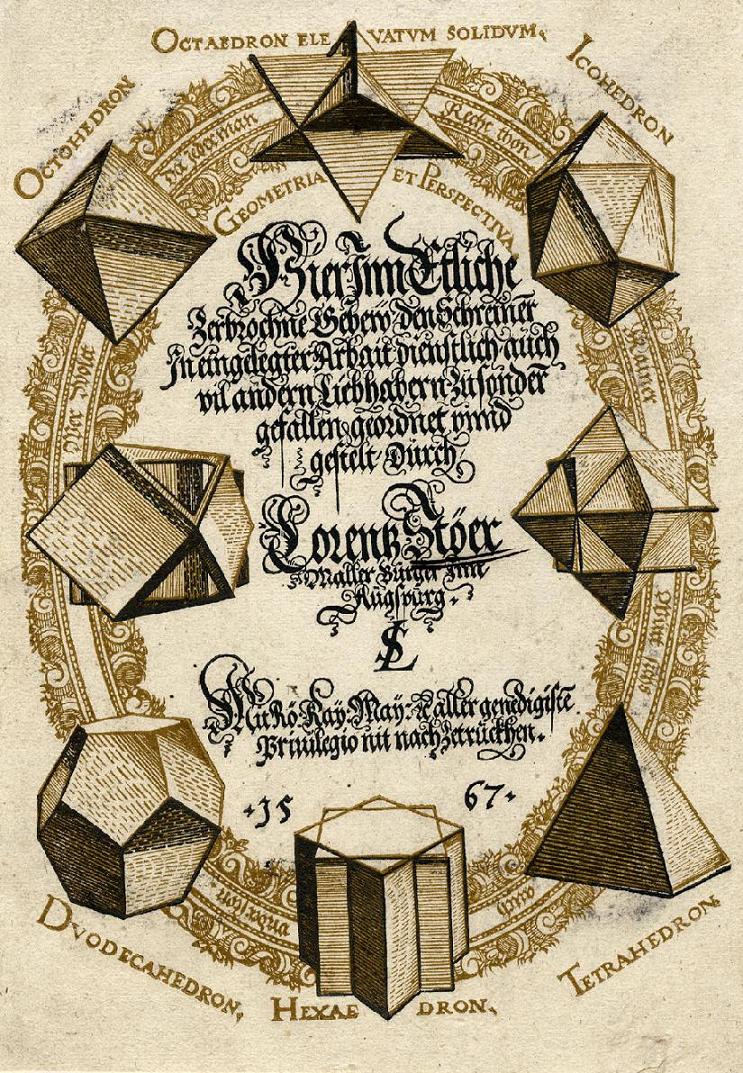 OCTAEDRON ELEVATVM SOLIDVM.
ICOHEDRON
OCTOHEDRON
Recht thon
GEOMETRIA ET PERSPECTIVA
Hier Inn Etliche
Zerbrochne Gebew, den Schreiner
In eingelegter Arbait dienstlich, auch
vil andern Liebhabern Zusonder
gefallen geordnet vnnd
gestelt Durch,
Lorentz Stöer
Maller Burger Inn
Augspurg.
LS
Mit Rö. Kay. May. R. aller genedigiste.
Priuilegio nit nach Zetruckhen.
.15 67.
DVODECAHEDRON,
HEXAEDRON,
TETRAHEDRON